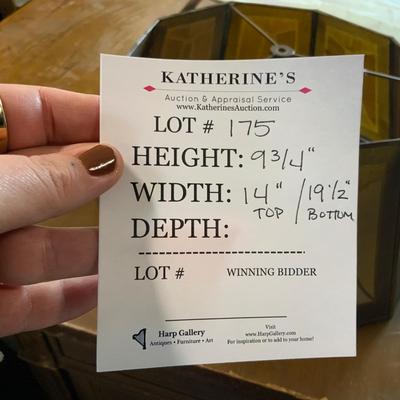 KATHERINE'S
Auction & Appraisal Service
www.KatherinesAuction.com
LOT # 175
HEIGHT: 9 3/4"
WIDTH: 14" TOP / 19 1/2" BOTTOM
DEPTH:
LOT # WINNING BIDDER
Harp Gallery
Antiques • Furniture • Art
Visit
www.HarpGallery.com
For inspiration or to add to your home!